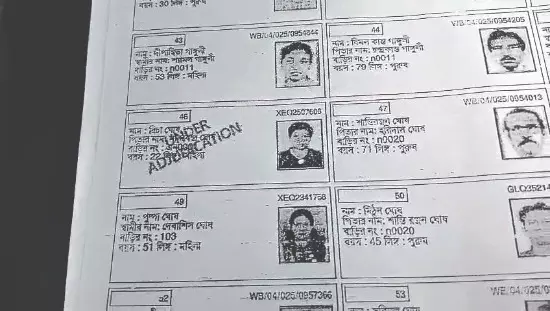 বয়স : 30 লিঙ্গ : পুরুষ
43
WB/04/025/0954844
নাম : দীপান্বিতা গাঙ্গুলী
স্বামীর নাম: শ্যামল গাঙ্গুলী
বাড়ির নং : n0011
বয়স : 53 লিঙ্গ : মহিলা
44
WB/04/025/0954205
নাম : বিমল কান্ত গাঙ্গুলী
পিতার নাম: চন্দ্রকান্ত গাঙ্গুলী
বাড়ির নং : n0011
বয়স : 79 লিঙ্গ : পুরুষ
46
XEQ2507606
নাম : রিচা ঘোষ
পিতার নাম:
বাড়ির নং :
বয়স : 22 লিঙ্গ : মহিলা
UNDER
ADJUDICATION
47
WB/04/025/0954013
নাম : শান্তিরঞ্জন ঘোষ
পিতার নাম: হরিলাল ঘোষ
বাড়ির নং : n0020
বয়স : 71 লিঙ্গ : পুরুষ
49
XEQ2341758
নাম : পুষ্পা ঘোষ
স্বামীর নাম: দেবাশিস ঘোষ
বাড়ির নং : 103
বয়স : 51 লিঙ্গ : মহিলা
50
GLQ3521
নাম : মিঠুন ঘোষ
পিতার নাম: শান্তি রঞ্জন ঘোষ
বাড়ির নং : n0020
বয়স : 45 লিঙ্গ : পুরুষ
52
WB/04/025/0957366
53
WB/04/025/0